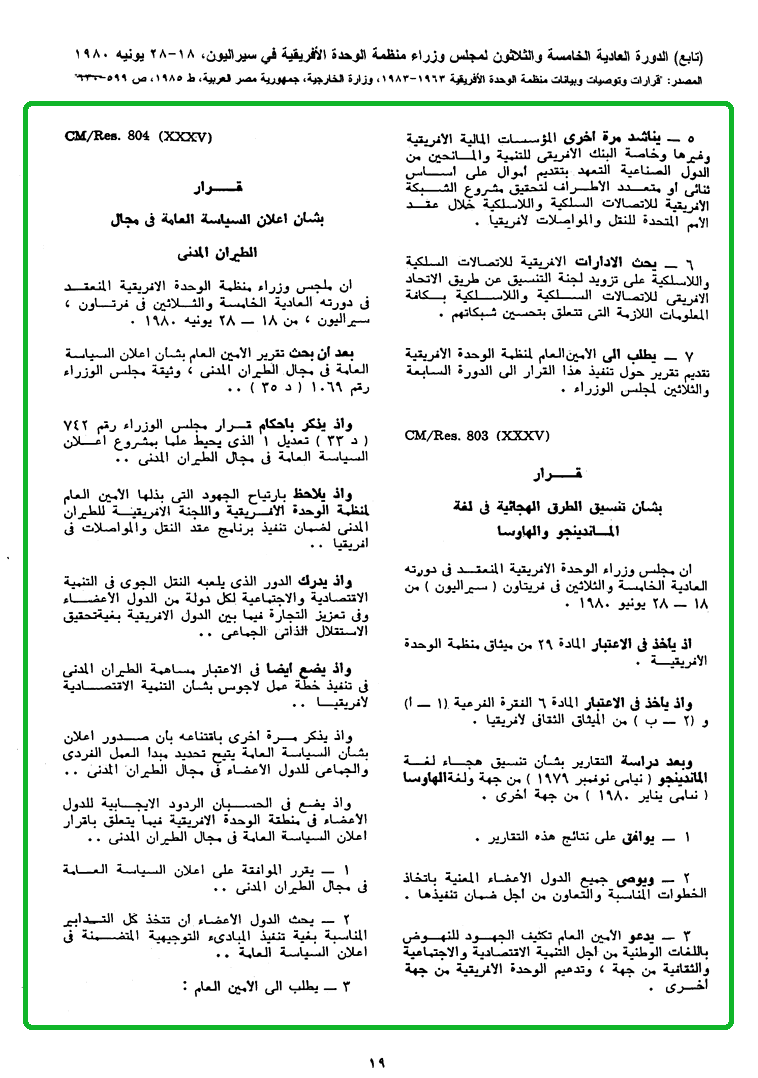 (تابع) الدورة العادية الخامسة والثلاثون لمجلس وزراء منظمة الوحدة الأفريقية في سيراليون، ١٨-٢٨ يونيه ١٩٨٠
المصدر: قرارات وتوصيات وبيانات منظمة الوحدة الأفريقية ١٩٦٣-١٩٨٣، وزارة الخارجية، جمهورية مصر العربية، ط ١٩٨٥، ص ٥٩٩-
٥ — يناشد مرة أخرى المؤسسات المالية الافريقية
وغيرها وخاصة البنك الافريقى للتنمية والمـانحين من
الدول الصناعية التعهد بتقديم أموال على اسـاس
ثنائى أو متعـدد الأطـراف لتحقيق مشروع الشـبكة
الافريقية للاتصالات السلكية واللاسلكية خلال عقـد
الأمم المتحدة للنقل والمواصلات لأفريقيا .
٦ — يحث الادارات الافريقية للاتصالات السـلكية
واللاسلكية على تزويد لجنة التنسيق عن طريق الاتحاد
الافريقى للاتصالات السـلكية واللاسـلكية بـكافة
المعلومات اللازمة التى تتعلق بتحسين شبكاتهم .
٧ — يطلب الى الأمين العام لمنظمة الوحدة الأفريقية
تقديم تقرير حول تنفيذ هذا القرار الى الدورة السابعة
والثلاثين لمجلس الوزراء .
CM/Res. 803 (XXXV)
قـــرار
بشأن تنسيق الطرق الهجائية فى لغة
المـاندينجو والهاوسا
ان مجلس وزراء الوحدة الافريقية المنعقـد فى دورته
العادية الخامسة والثلاثين فى فريتاون ( سيراليون ) من
١٨ — ٢٨ يونيو ١٩٨٠ .
اذ يأخذ فى الاعتبار المادة ٢٩ من ميثاق منظمة الوحدة
الأفريقيـــة .
واذ يأخذ فى الاعتبار المادة ٦ الفقرة الفرعية (١ — أ)
و (٢ — ب ) من الميثاق الثقافى لأفريقيا .
وبعد دراسة التقارير بشأن تنسيق هجـاء لغـة
الماندينجو ( نيامى نوفمبر ١٩٧٩ ) من جهة ولغة الهاوسا
( نيامى يناير ١٩٨٠ ) من جهة أخرى .
١ — يوافق على نتائج هذه التقارير .
٢ — ويوصى جميع الدول الأعضاء المعنية باتخاذ
الخطوات المناسبة والتعاون من أجل ضمان تنفيذها .
٣ — يدعو الأمين العام تكثيف الجهـود للنهـوض
باللغات الوطنية من أجل التنمية الاقتصادية والاجتماعية
والثقافية من جهة ، وتدعيم الوحدة الأفريقية من جهة
أخـرى .
CM/Res. 804 (XXXV)
قـــرار
بشأن اعلان السياسة العامة فى مجال
الطيران المدنى
ان ملجس وزراء منظمة الوحدة الافريقية المنعقـد
فى دورته العادية الخامسة والثـلاثين فى فرتـاون ،
سيراليون ، من ١٨ — ٢٨ يونيه ١٩٨٠ .
بعد أن بحث تقرير الأمين العام بشأن اعلان السياسة
العامة فى مجال الطيران المدنى ، وثيقة مجلس الوزراء
رقم ١٠٦٩ ( د ٣٥ ) ..
واذ يذكر بأحكام قـرار مجلس الوزراء رقم ٧٤٢
( د ٣٣ ) تعديل ١ الذى يحيط علما بمشروع اعـلان
السياسة العامة فى مجال الطيران المدنى ..
واذ يلاحظ بارتياح الجهود التى بذلها الأمين العام
لمنظمة الوحدة الأفـريقية واللجنة الافريقيـة للطيران
المدنى لضمان تنفيذ برنامج عقد النقل والمواصلات فى
افريقيا ..
واذ يدرك الدور الذى يلعبه النقل الجوى فى التنمية
الاقتصادية والاجتماعية لكل دولة من الدول الأعضـاء
وفى تعزيز التجارة فيما بين الدول الافريقية بغية تحقيق
الاستقلال الذاتى الجماعى ..
واذ يضع أيضا فى الاعتبار مساهمة الطيران المدنى
فى تنفيذ خطة عمل لاجوس بشأن التنمية الاقتصـادية
لافريقيـا ..
واذ يذكر مـرة أخرى باقتناعه بأن صـدور اعلان
بشأن السياسة العامة يتيح تحديد مبدأ العمل الفردى
والجماعى للدول الأعضاء فى مجال الطيران المدنى ..
واذ يضع فى الحسـبان الردود الايجـابية للدول
الأعضاء فى منطقة الوحدة الافريقية فيما يتعلق باقرار
اعلان السياسة العامة فى مجال الطيران المدنى ..
١ — يقرر الموافقة على اعلان السياسة العـامة
فى مجال الطيران المدنى ..
٢ — يحث الدول الأعضاء أن تتخذ كل التـدابير
المناسبة بغية تنفيذ المبادىء التوجيهية المتضـمنة فى
اعلان السياسة العامة ..
٣ — يطلب الى الأمين العام :
١٩